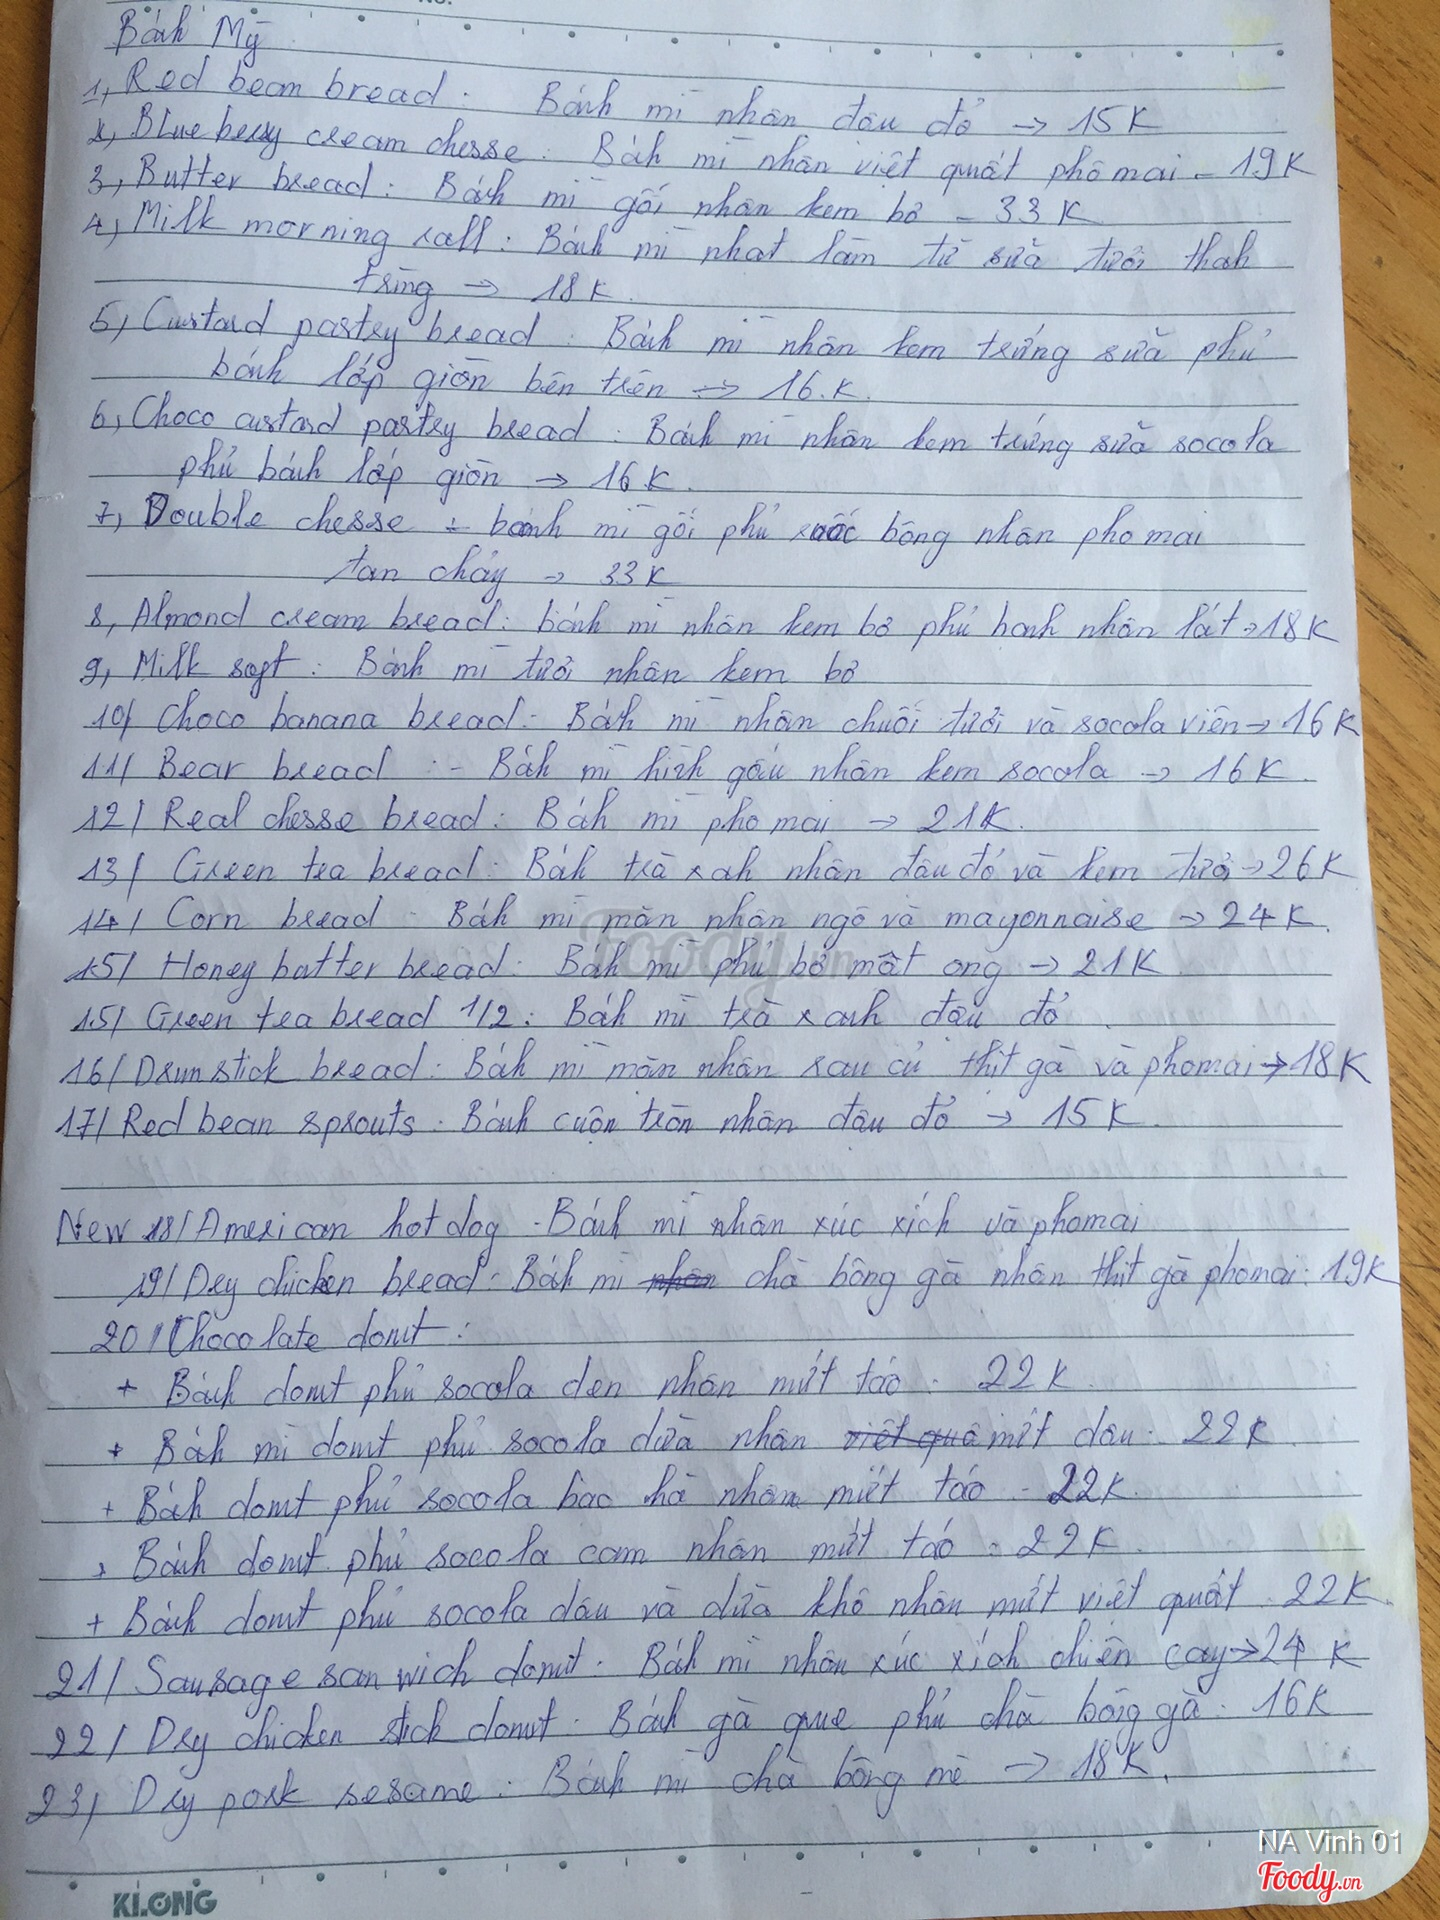 No.
Bánh Mỳ
1, Red bean bread : Bánh mì nhân đậu đỏ → 15K
2, Blue berry cream chesse : Bánh mì nhân việt quất phô mai - 19K
3, Butter bread : Bánh mì gối nhân kem bơ - 33K
4, Milk morning call : Bánh mì nhạt làm từ sữa tươi thanh
trùng → 18K.
5, Custard pastry bread : Bánh mì nhân kem trứng sữa phủ
bánh lớp giòn bên trên → 16.K.
6, Choco custard pastry bread : Bánh mì nhân kem trứng sữa socola
phủ bánh lớp giòn → 16K.
7, Double chesse - bánh mì gối phủ bông nhân pho mai
tan chảy → 33K
8, Almond cream bread : bánh mì nhân kem bơ phủ hạnh nhân lát → 18K
9, Milk soft : Bánh mì tươi nhân kem bơ
10/ Choco banana bread : Bánh mì nhân chuối tươi và socola viên → 16K
11/ Bear bread : - Bánh mì hình gấu nhân kem socola → 16K.
12/ Real chesse bread : Bánh mì pho mai → 21K.
13/ Green tea bread : Bánh trà xanh nhân đậu đỏ và kem tươi → 26K
14/ Corn bread - Bánh mì mặn nhân ngô và mayonnaise → 24K.
15/ Honey butter bread : Bánh mì phủ bơ mật ong → 21K
15/ Green tea bread 1/2 : Bánh mì trà xanh đậu đỏ.
16/ Drumstick bread : Bánh mì mặn nhân rau củ thịt gà và phomai → 18K
17/ Red bean sprouts . Bánh cuộn tròn nhân đậu đỏ → 15K.
New 18/ American hotdog - Bánh mì nhân xúc xích và phomai
19/ Dry chicken bread : Bánh mì nhân chà bông gà nhân thịt gà phomai : 19K
20/ Chocolate donut :
+ Bánh donut phủ socola đen nhân mứt táo . 22K.
+ Bánh mì donut phủ socola dừa nhân việt quấ mứt dâu . 22K
+ Bánh donut phủ socola bạc hà nhân mứt táo - 22K.
+ Bánh donut phủ socola cam nhân mứt táo - 22K.
+ Bánh donut phủ socola dâu và dừa khô nhân mứt việt quất . 22K.
21/ Sausage sanwich donut . Bánh mì nhân xúc xích chiên cay → 24K
22/ Dry chicken stick donut . Bánh gà que phủ chà bông gà . 16K
23, Dry pork sesame : Bánh mì chà bông mè → 18K.
KLONG
Foody.vn
NA Vinh 01
Foody.vn